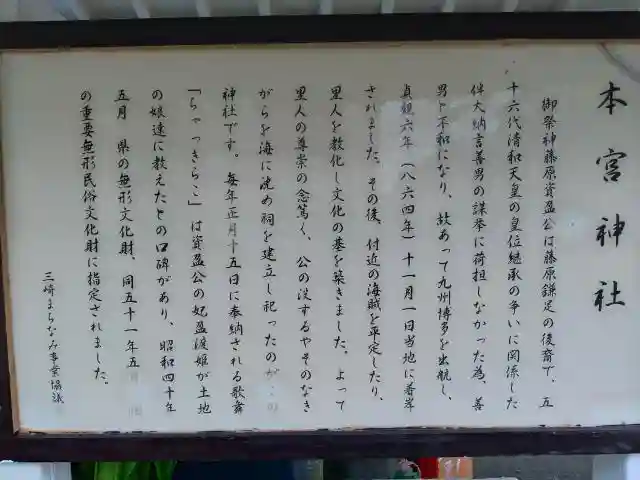 本宮神社
御祭神藤原資盈公は藤原鎌足の後裔で、五
十六代清和天皇の皇位継承の争いに関係した
伴大納言善男の謀挙に荷担しなかった為、善
男と不和になり、故あって九州博多を出航し、
貞観六年(八六四年)十一月一日当地に着岸
されました。その後、付近の海賊を平定したり、
里人を教化し文化の基を築きました。よって
里人の尊崇の念篤く、公の没するやそのなき
がらを海に沈め祠を建立し祀ったのが
神社です。毎年正月十五日に奉納される歌舞
「ちゃっきらこ」は資盈公の妃盈渡姫が土地
の娘達に教えたとの口碑があり、昭和四十年
五月 県の無形文化財、同五十一年五月
の重要無形民俗文化財に指定されました。
三崎まちなみ事業協議